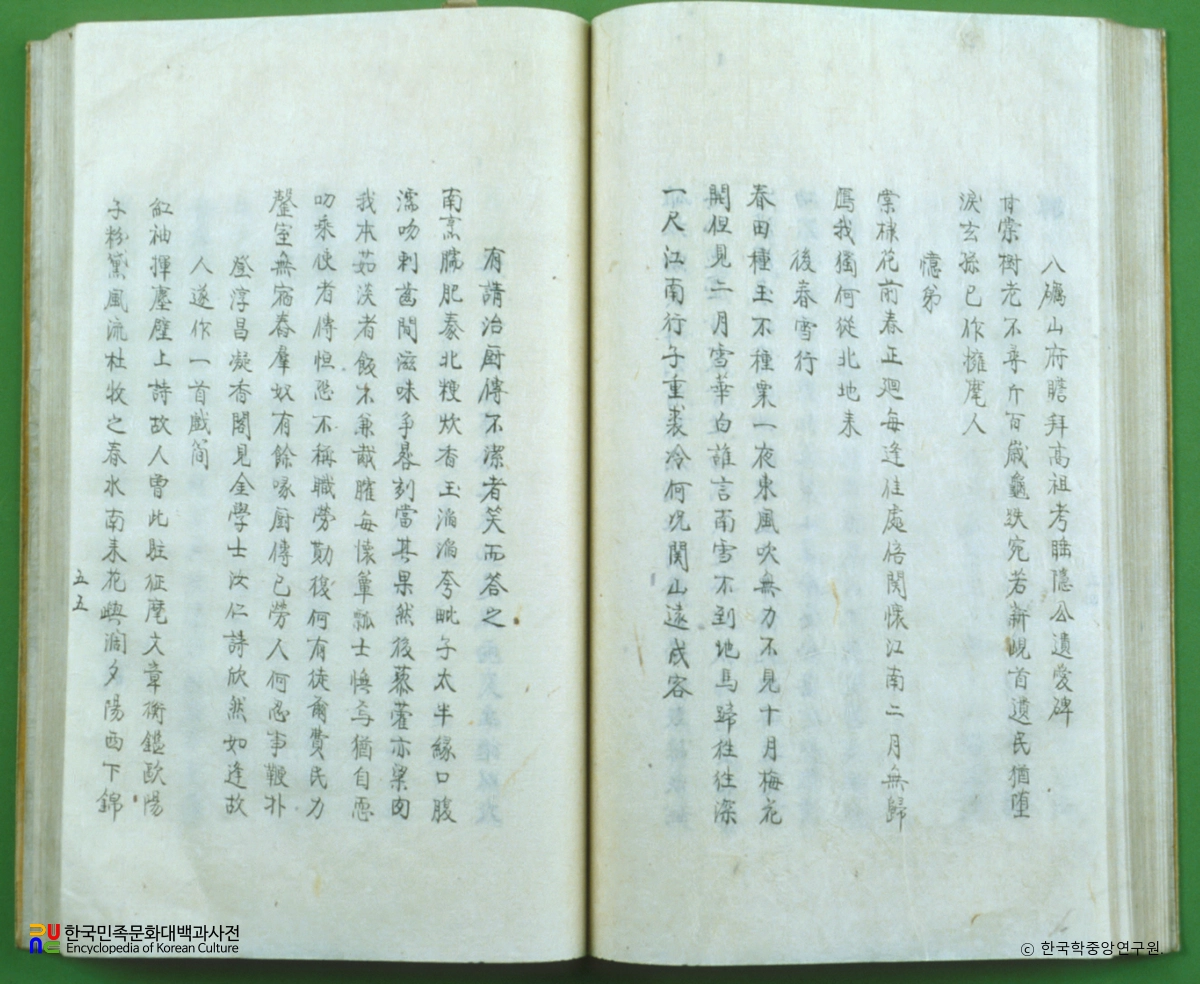 八礪山府瞻拜高祖考睡隱公遺愛碑
甘棠樹老不尋斤百歲龜趺宛若新峴首遺民猶堕
淚玄孫已作擁麾人
憶弟
棠棣花前春正廻每逢佳處倍関懷江南二月無歸
鴈我獨何從北地来
後春雪行
春田種玉不種粟一夜東風吹無力不見十月梅花
開但見二月雪華白誰言南雪不到地馬蹄往往深
一尺江南行子重裘冷何况関山遠戍客
有請治厨傳不潔者笑而答之
南烹腸肥泰北粳炊香玉滔滔夸毗子太半緣口腹
濡吻剌舌間滋味争晷刻當其果然後藜藿亦粱肉
我本茹淡者飯不兼蔬臛每懷簞瓢士悵焉猶自恧
叨乘使者傳恒恐不稱職勞勩復何有徒爾費民力
罄室無宿舂羣奴有餘喙厨傳已勞人何忍事鞭扑
登淳昌凝香閣見金學士汝仁詩欣然如逢故
人遂作一首戲簡
紅袖揮塵壁上詩故人曾此駐征麾文章衡鑑歐陽
子粉黛風流杜牧之春水南来花嶼濶夕陽西下錦
五五
한국민족문화대백과사전
Encyclopedia of Korean Culture
© 한국학중앙연구원